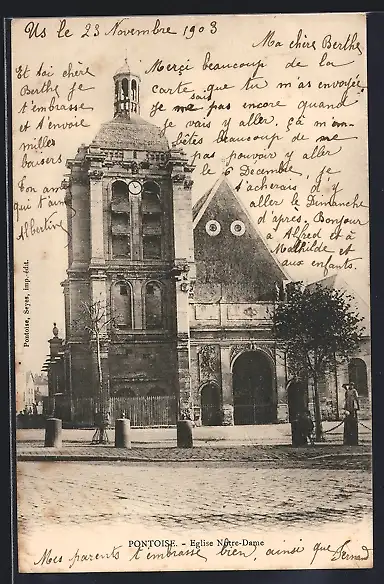 Us le 23 Novembre 1903
Ma chère Berthe
Merci beaucoup de la
carte que tu m'as envoyée
je me sais pas encore quand
je vais y aller. Ça m'em-
bétes beaucoup de me
pas pouvoir y aller
le 6 Decembre, je
t'acherais d'y
aller le Dimanche
d'après. Bonjour
a Alfred et à
Mathilde et à
aux enfants.
Et toi chère
Berthe je
t'embrasse
et t'envoie
milles
baisers
Ton amie
qui t'aime
Albertine
Pontoise, Seyes, imp.-édit.
PONTOISE. - Eglise Nôtre-Dame
Mes parents t'embrasse bien, ainsi que Fernand